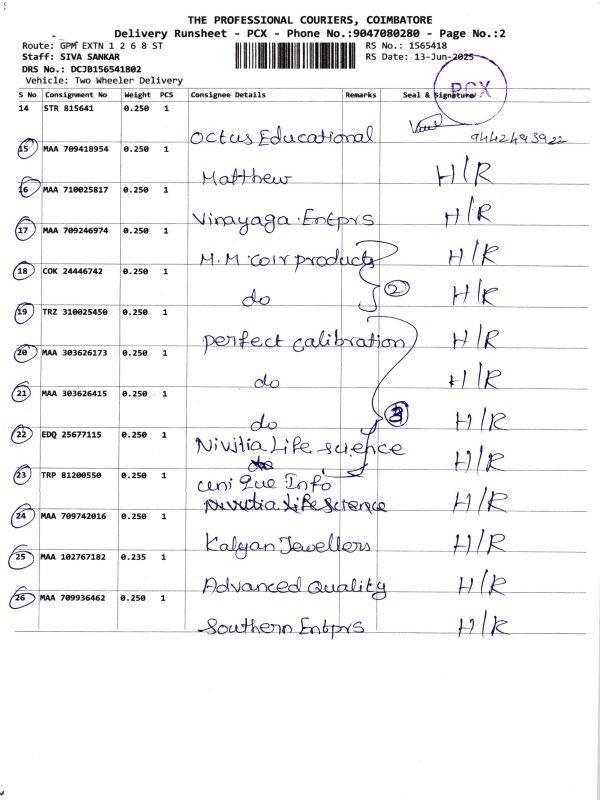 THE PROFESSIONAL COURIERS, COIMBATORE
Delivery Runsheet - PCX - Phone No.:9047080280 - Page No.:2
Route: GPM EXTN 1 2 6 8 ST
RS No.: 1565418
Staff: SIVA SANKAR
RS Date: 13-Jun-2025
DRS No.: DCJB156541802
Vehicle: Two Wheeler Delivery
PCX
S No Consignment No Weight PCS Consignee Details Remarks Seal & Signature
14 STR 815641 0.250 1
Octus Educational 9442493922
15 MAA 709418954 0.250 1
Matthew H/R
16 MAA 710025817 0.250 1
Vinayaga Entprs H/R
17 MAA 709246974 0.250 1
M.M. coir products H/R
18 COK 24446742 0.250 1
do 2 H/R
19 TRZ 310025450 0.250 1
perfect calibration H/R
20 MAA 303626173 0.250 1
do H/R
21 MAA 303626415 0.250 1
do 3 H/R
22 EDQ 25677115 0.250 1
Nivitia Life science H/R
23 TRP 81200550 0.250 1
uni Que Info
Nivitia Life Science H/R
24 MAA 709742016 0.250 1
Kalyan Jewellers H/R
25 MAA 102767182 0.235 1
Advanced Quality H/R
26 MAA 709936462 0.250 1
Southern Entprs H/R